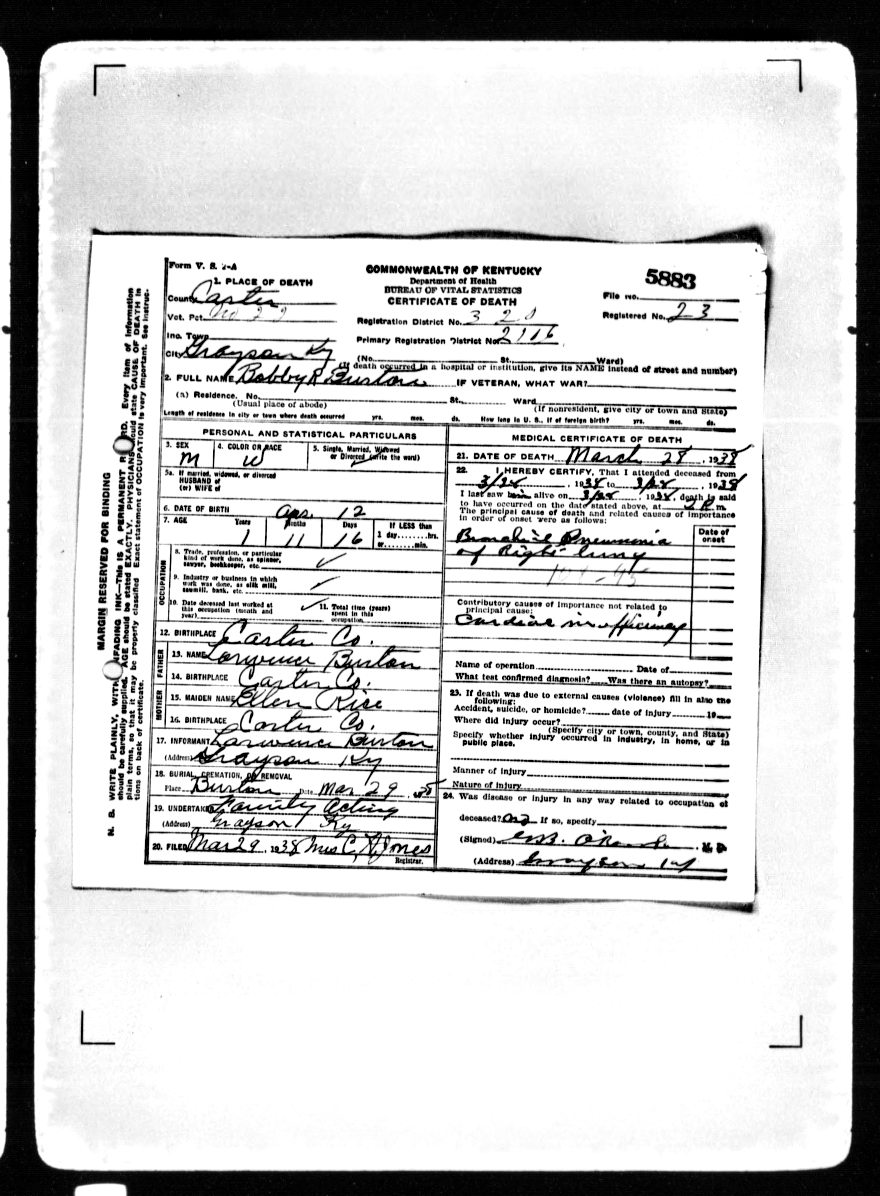 Form V. S. 1-A
COMMONWEALTH OF KENTUCKY
Department of Health
BUREAU OF VITAL STATISTICS
CERTIFICATE OF DEATH
5883
File No.
Registered No. 23
1. PLACE OF DEATH
County Carter
Vot. Pct.
Inc. Town
City Grayson Ky
Registration District No. 320
Primary Registration District No. 2116
(No. St., Ward)
(If death occurred in a hospital or institution, give its NAME instead of street and number)
2. FULL NAME Bobby R. Burton IF VETERAN, WHAT WAR?
(a) Residence. No. St., Ward
(Usual place of abode) (If nonresident, give city or town and State)
Length of residence in city or town where death occurred yrs. mos. ds. How long in U. S., if of foreign birth? yrs. mos. ds.
PERSONAL AND STATISTICAL PARTICULARS
3. SEX M
4. COLOR OR RACE W
5. Single, Married, Widowed or Divorced (write the word)
5a. If married, widowed, or divorced
HUSBAND of
(or) WIFE of
6. DATE OF BIRTH Apr. 12
7. AGE Years 1 Months 11 Days 16 If LESS than 1 day hrs. or min.
OCCUPATION
8. Trade, profession, or particular
kind of work done, as spinner,
sawyer, bookkeeper, etc. ✓
9. Industry or business in which
work was done, as silk mill,
sawmill, bank, etc. ✓
10. Date deceased last worked at
this occupation (month and
year) ✓
11. Total time (years)
spent in this
occupation
12. BIRTHPLACE Carter Co.
FATHER
13. NAME Lorwence Burton
14. BIRTHPLACE Carter Co.
MOTHER
15. MAIDEN NAME Ellen Rice
16. BIRTHPLACE Carter Co.
17. INFORMANT Larwence Burton
(Address) Grayson Ky
18. BURIAL, CREMATION, OR REMOVAL
Place Burton Date Mar 29, 1938
19. UNDERTAKER Family Acting
(Address) Grayson Ky
20. FILED Mar 29, 1938 Mrs C, Jones
Registrar.
MEDICAL CERTIFICATE OF DEATH
21. DATE OF DEATH March 28, 1938
22. I HEREBY CERTIFY, That I attended deceased from
3/28, 1938 to 3/28, 1938
I last saw him alive on 3/28, 1938, death is said
to have occurred on the date stated above, at 2 P. m.
The principal cause of death and related causes of importance
in order of onset were as follows:
Date of onset
Bronchial Pneumonia
of Right lung
Contributory causes of importance not related to
principal cause:
Cardiac insufficiency
Name of operation Date of
What test confirmed diagnosis? Was there an autopsy?
23. If death was due to external causes (violence) fill in also the
following:
Accident, suicide, or homicide? date of injury 19
Where did injury occur?
(Specify city or town, county, and State)
Specify whether injury occurred in industry, in home, or in
public place.
Manner of injury
Nature of injury
24. Was disease or injury in any way related to occupation of
deceased? no If so, specify
(Signed) M. D.
(Address) Grayson Ky
MARGIN RESERVED FOR BINDING
N. B. WRITE PLAINLY, WITH UNFADING INK—This is A PERMANENT RECORD. Every item of information
should be carefully supplied. AGE should be stated EXACTLY. PHYSICIANS should state CAUSE OF DEATH in
plain terms, so that it may be properly classified. Exact statement of OCCUPATION is very important. See instruc-
tions on back of certificate.